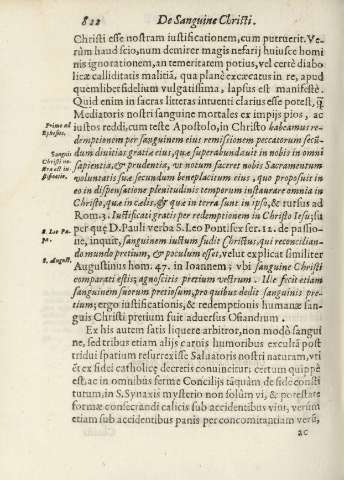 822 De Sanguine Christi.
Christi esse nostram iustificationem, cum putruerit. Ve-
rùm haud scio, num demirer magis nefarij huiusce homi
nis ignorationem, an temeritatem potius, vel certè diabo
licæ calliditatis malitiã, qua planè excæcatus in re, apud
quemlibet fidelium vulgatissima, lapsus est manifestè.
Quid enim in sacras litteras intuenti clarius esse potest, q̃
Mediatoris nostri sanguine mortales ex impijs pios, ac
Primo ad
Ephesos.
iustos reddi, cum teste Apostolo, in Christo habeamus re-
demptionem per sanguinem eius remissionem peccatorum secũ-
Sanguis
Christi no-
stra est iu-
stificatio.
dum diuitias gratiæ eius, quæ superabundauit in nobis in omni
sapientia, & prudentia, vt notum faceret nobis Sacramentum
voluntatis suæ secundum beneplacitum eius, quo proposuit in
eo in dispensatione plenitudinis temporum instaurare omnia in
Christo, quæ in cælis, & quæ in terra sunt in ipso, & rursus ad
Rom. 3. Iustificati gratis per redemptionem in Christo Iesu; su
per quę D. Pauli verba S. Leo Pontifex ser. 12. de passio-
S. Leo Pa-
pa.
ne, inquit, sanguinem iustum fudit Christus, qui reconcilian-
do mundo pretium, & poculum esset, velut explicat similiter
S. August.
Augustinus hom. 47. in Ioannem; vbi sanguine Christi
comparati estis; agnoscitis pretium vestrum. Ille fecit etiam
sanguinem suorum pretiosum, pro quibus dedit sanguinis pre-
tium; ergo iustificationis, & redemptionis humanæ san-
guis Christi pretium fuit aduersus Osiandrum.
Ex his autem satis liquere arbitror, non modò sangui
ne, sed tribus etiam alijs carnis humoribus exculta post
tridui spatium resurrexisse Saluatoris nostri naturam, vti
ẽt ex fidei catholicę decretis conuincitur; certum quippè
est, ac in omnibus fermè Concilijs tãquàm de fide consti
tutum, in S. Synaxis mysterio non solùm vi, & potestate
formæ consecrandi calicis sub accidentibus vini, verùm
etiam sub accidentibus panis per concomitantiam verũ,
ac